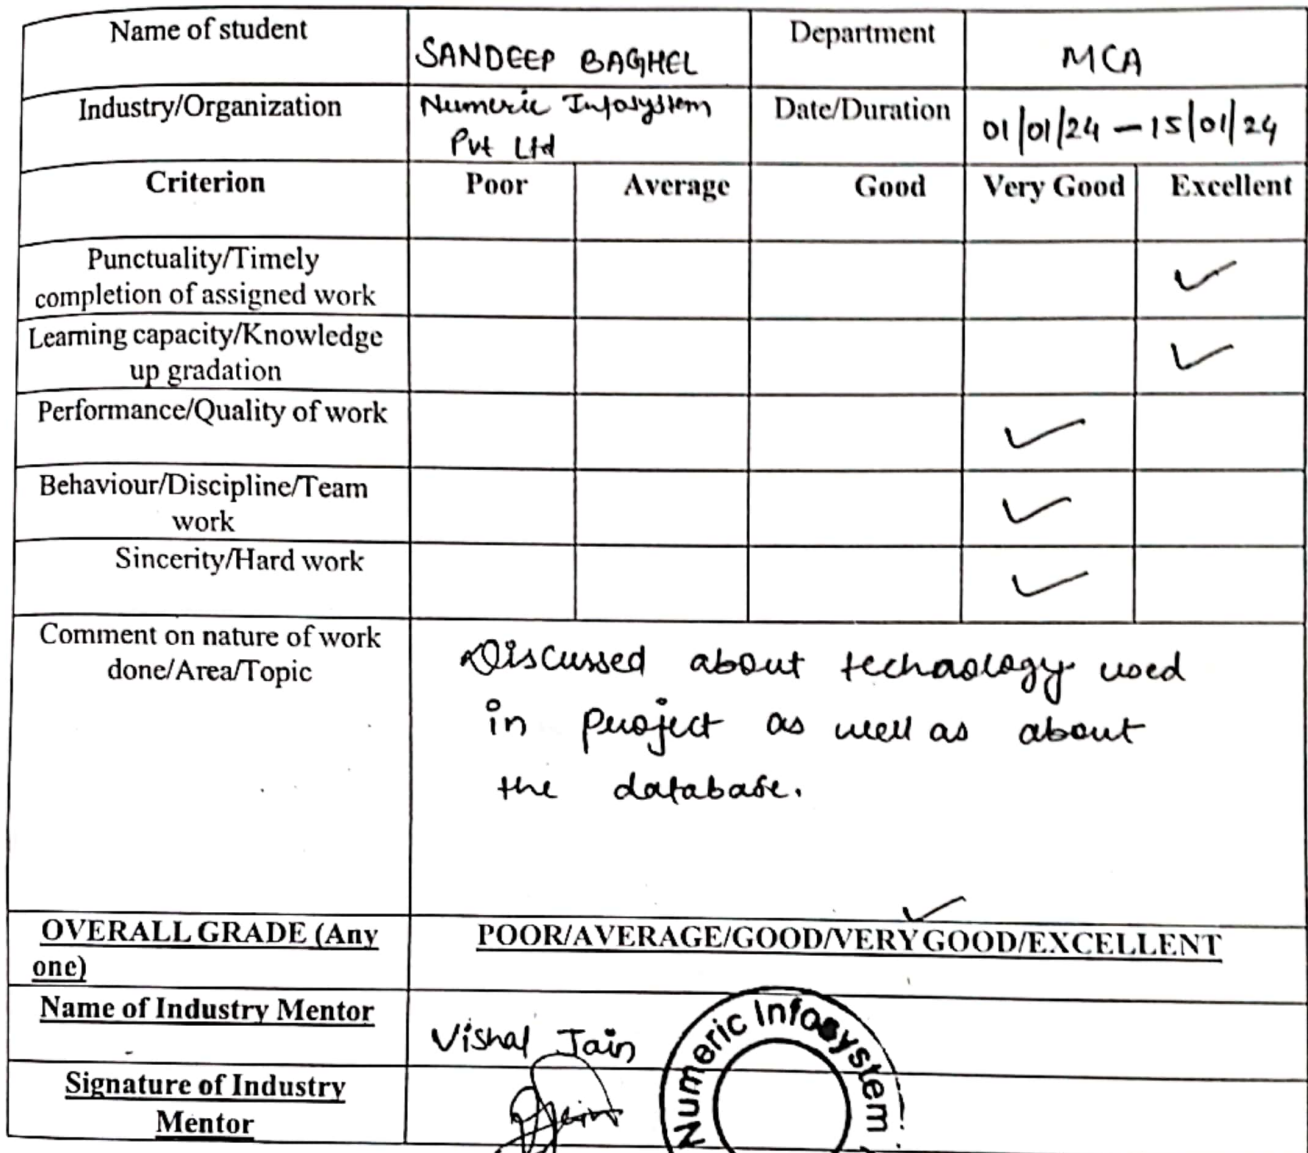 Name of student SANDEEP BAGHEL Department MCA
Industry/Organization Numeric Infosystem Pvt Ltd Date/Duration 01/01/24 - 15/01/24
Criterion Poor Average Good Very Good Excellent
Punctuality/Timely
completion of assigned work ✓
Learning capacity/Knowledge
up gradation ✓
Performance/Quality of work ✓
Behaviour/Discipline/Team
work ✓
Sincerity/Hard work ✓
Comment on nature of work
done/Area/Topic
Discussed about technology used
in project as well as about
the database.
OVERALL GRADE (Any
one)
✓
POOR/AVERAGE/GOOD/VERY GOOD/EXCELLENT
Name of Industry Mentor Vishal Jain
Signature of Industry
Mentor
Jain
Numeric Infosystem